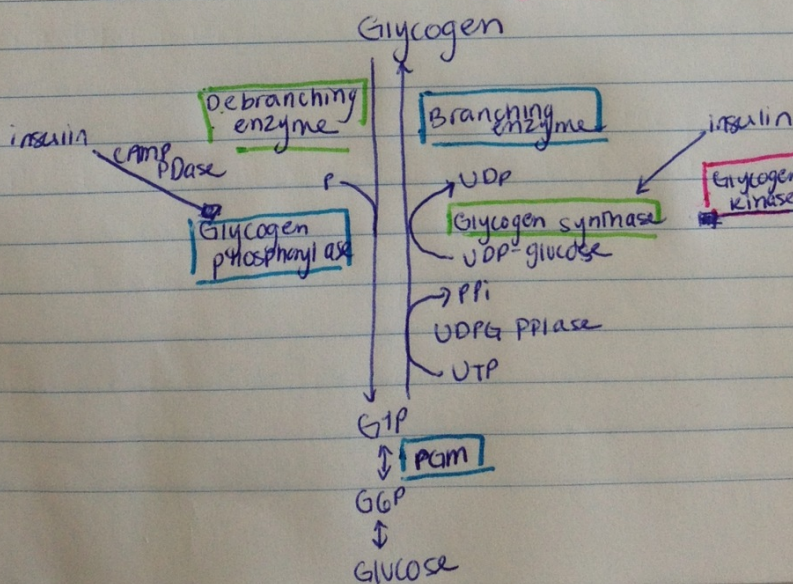 Glycogen
Debranching
enzyme
Branching
enzyme
insulin
cAMP
PDase
insulin
P
UDP
Glycogen
kinase
Glycogen
phosphorylase
Glycogen synthase
UDP-glucose
PPi
UDPG PPIase
UTP
G1P
PGM
G6P
Glucose